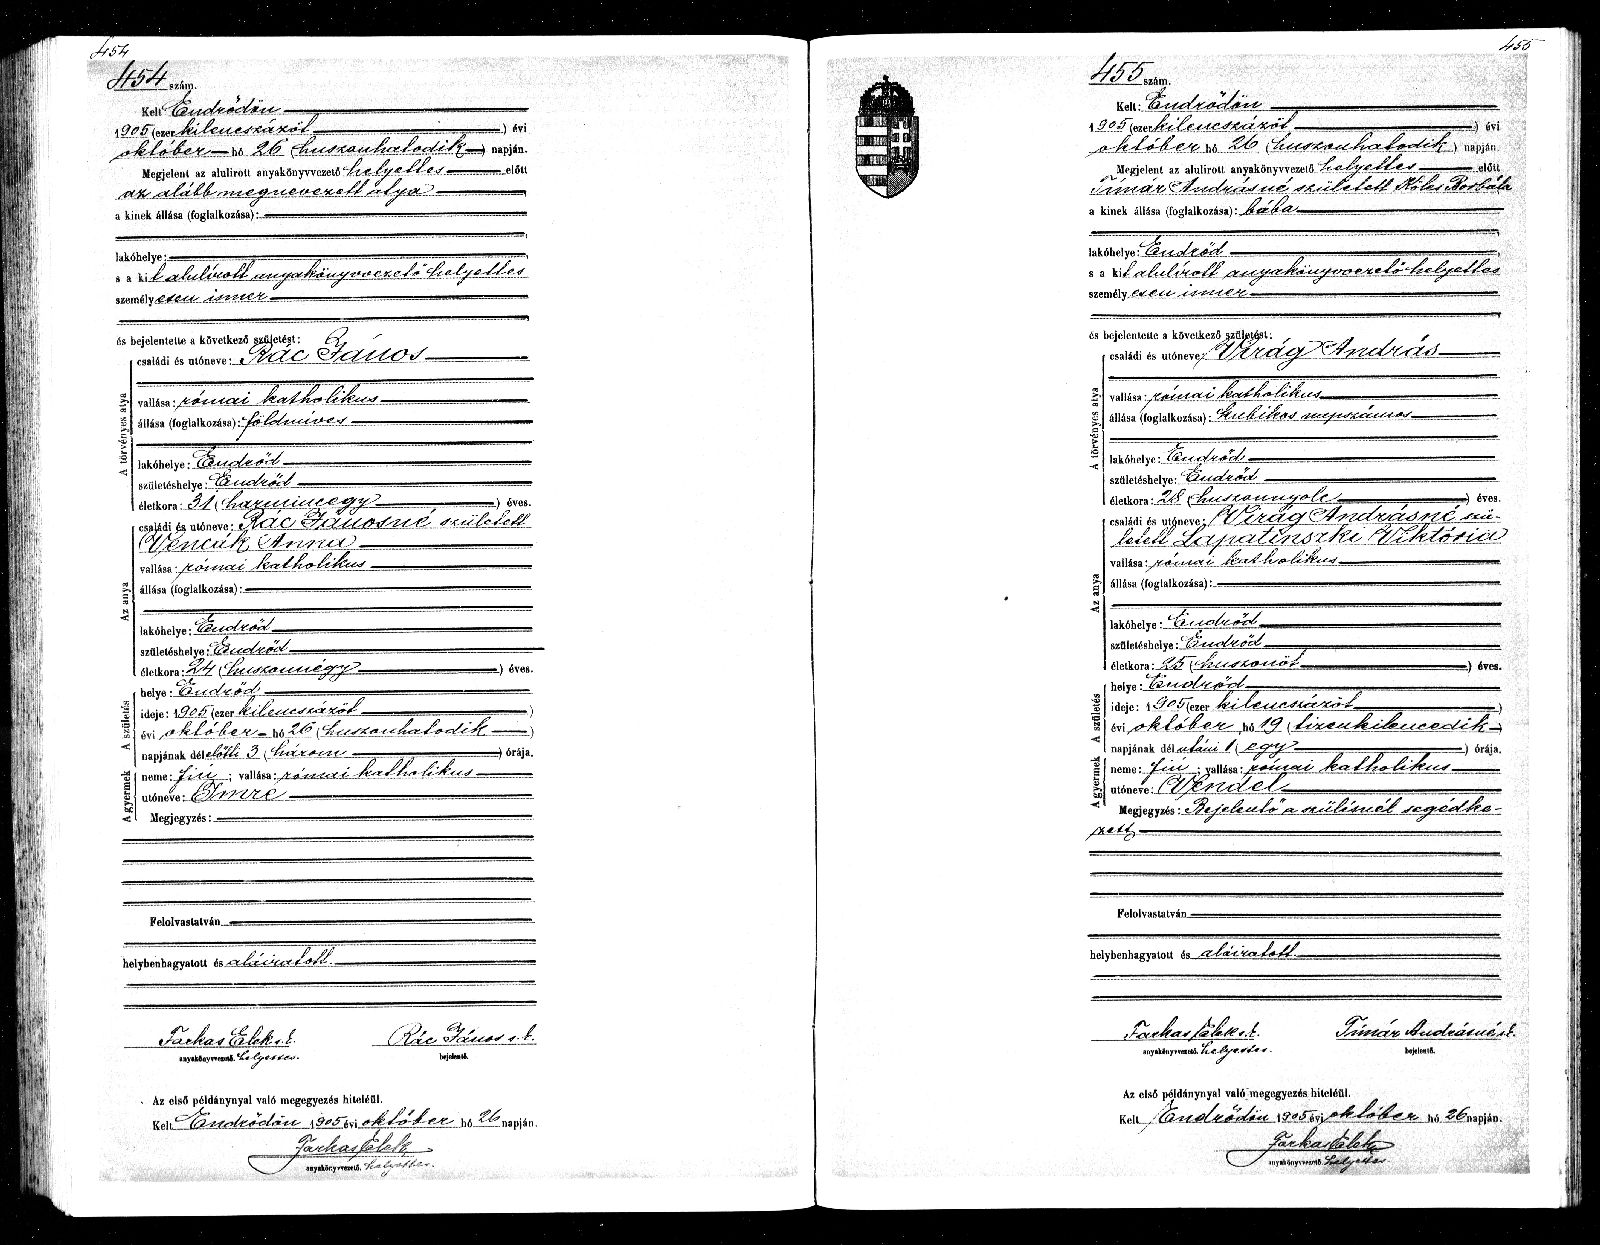 454
454 szám.
Kelt Endrődön
1905 (ezer kilencszázöt) évi
október hó 26 (huszonhatodik) napján.
Megjelent az alulirott anyakönyvvezető helyettes előtt
az alább megnevezett atya
a kinek állása (foglalkozása):
lakóhelye:
s a kit alulírott anyakönyvvezető helyettes
személyesen ismer
és bejelentette a következő születést:
A törvényes atya
családi és utóneve: Rác János
vallása: római katholikus
állása (foglalkozása): földmíves
lakóhelye: Endrőd
születéshelye: Endrőd
életkora: 31 (harmincegy) éves.
Az anya
családi és utóneve: Rác Jánosné született
Vencák Anna
vallása: római katholikus
állása (foglalkozása):
lakóhelye: Endrőd
születéshelye: Endrőd
életkora: 24 (huszonnégy) éves.
A születés
helye: Endrőd
ideje: 1905 (ezer kilencszázöt)
évi október hó 26 (huszonhatodik)
napjának délelőtti 3 (három) órája.
A gyermek
neme: fiú; vallása: római katholikus
utóneve: Imre
Megjegyzés:
Felolvastatván
helybenhagyatott és aláiratott.
Farkas Elek s.k. Rác János s.k.
anyakönyvvezető helyettes. bejelentő.
Az első példánynyal való megegyezés hiteléül.
Kelt Endrődön 1905 évi október hó 26 napján.
Farkas Elek
anyakönyvvezető helyettes.
455
455 szám.
Kelt: Endrődön
1905 (ezer kilencszázöt) évi
október hó 26 (huszonhatodik) napján.
Megjelent az alulirott anyakönyvvezető helyettes előtt
Tímár Andrásné született Borbála
a kinek állása (foglalkozása): bába
lakóhelye: Endrőd
s a kit alulírott anyakönyvvezető helyettes
személyesen ismer
és bejelentette a következő születést:
A törvényes atya
családi és utóneve: Virág András
vallása: római katholikus
állása (foglalkozása): kubikos napszámos
lakóhelye: Endrőd
születéshelye: Endrőd
életkora: 28 (huszonnyolc) éves.
Az anya
családi és utóneve: Virág Andrásné szü-
letett Lapatinszki Viktória
vallása: római katholikus
állása (foglalkozása):
lakóhelye: Endrőd
születéshelye: Endrőd
életkora: 25 (huszonöt) éves.
A születés
helye: Endrőd
ideje: 1905 (ezer kilencszázöt)
évi október hó 19 (tizenkilencedik)
napjának délutáni 1 (egy) órája.
A gyermek
neme: fiú; vallása: római katholikus
utóneve: Vendel
Megjegyzés: Bejelentő a szülésnél segédke-
zett
Felolvastatván
helybenhagyatott és aláiratott.
Farkas Elek s.k. Tímár Andrásné s.k.
anyakönyvvezető helyettes. bejelentő.
Az első példánynyal való megegyezés hiteléül.
Kelt Endrődön 1905 évi október hó 26 napján.
Farkas Elek
anyakönyvvezető helyettes